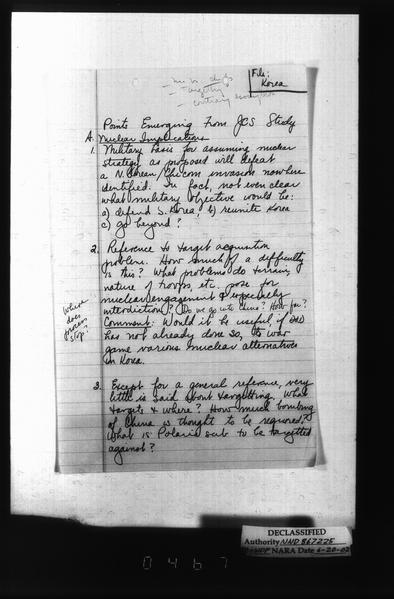 File:
Korea
Targetting
Points Emerging From JCS Study
A. Nuclear Implications
1. Military basis for assuming nuclear
strategy as proposed will defeat
a N. Korean/Chicom invasion nowhere
identified. In fact, not even clear
what military objective would be:
a) defend S. Korea; b) reunite Korea
c) go beyond?
2. Reference to target acquisition
problem. How much of a difficulty
is this? What problems do terrain,
nature of troops, etc. pose for
nuclear engagement & especially
interdiction? Do we go into China? How far?
Where
does
process
stop?
Comment: Would it be useful, if
has not already done so, to war
game various nuclear alternatives
in Korea.
3. Except for a general reference, very
little is said about targetting. What
targets & where? How much bombing
of China is thought to be required?
What is Polaris sub to be targetted
against?
DECLASSIFIED
Authority NND 867225
NARA Date 6-20-02
0467